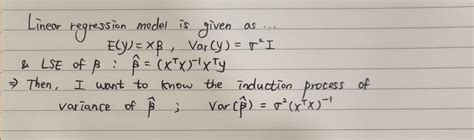 Linear regression model is given as ...
E(y) = Xβ , Var(y) = σ²I
& LSE of β : β̂ = (XᵀX)⁻¹Xᵀy
⇒ Then, I want to know the induction process of
variance of β̂ ; Var(β̂) = σ²(XᵀX)⁻¹